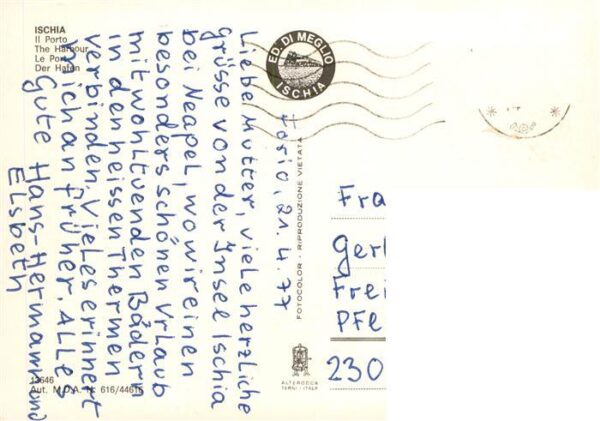 ISCHIA
Il Porto
The Harbour
Le Por
Der Hafen
ED. DI MEGLIO
ISCHIA
Forio, 21.4.77
Liebe Mutter, viele herzliche
Grüsse von der Insel Ischia
bei Neapel, wo wir einen
besonders schönen Urlaub
mit wohltuenden Bädern
in den heissen Thermen
verbinden. Vieles erinnert
mich an früher. Alles
Gute Hans-Hermann und
Elsbeth
FOTOCOLOR - RIPRODUZIONE VIETATA
Fra
Gerh
Frei
Pfe
230
ALTEROCCA
TERNI - ITALY
Aut. M.D.A. N. 616/44616